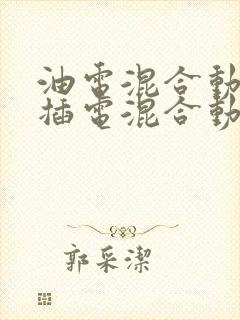 油電混合動
插電混合動
郭采潔